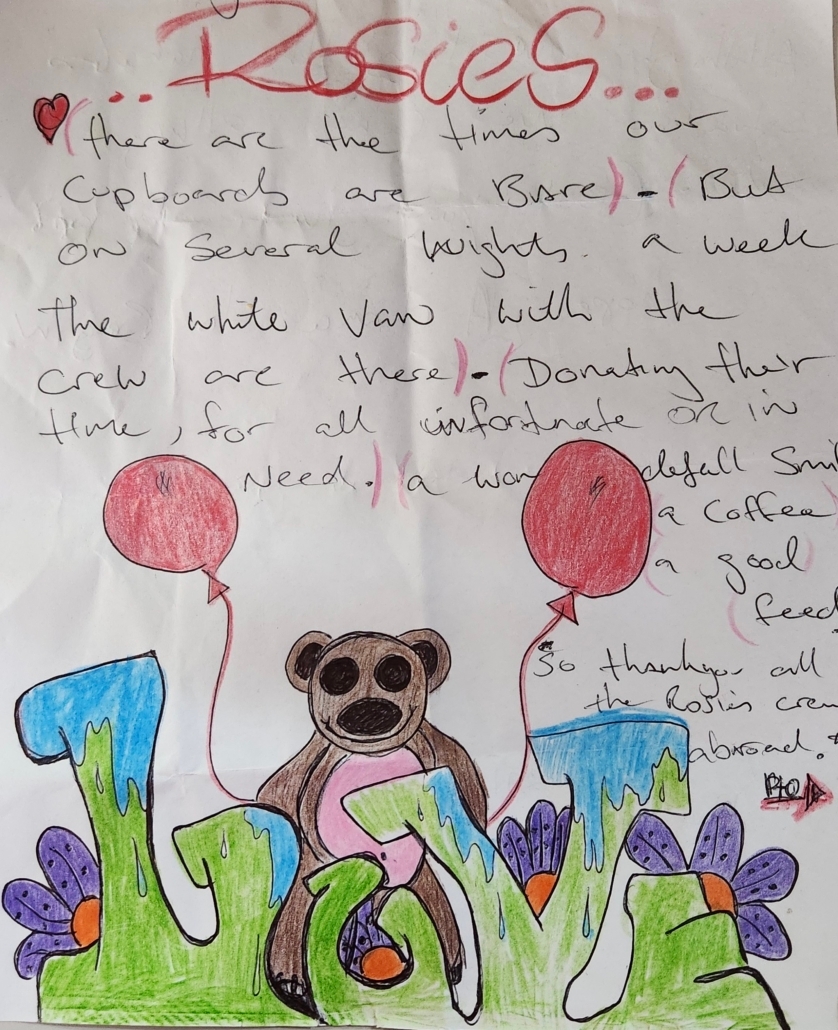 ..Rosies...
(there are the times our
Cupboards are Bare)-(But
on several knights. a week
the white van with the
crew are there)-(Donating their
time, for all unfortunate or in
Need.)(a wondefall Smil
(a Coffee)
(a good)
(feed
So thankyou all
the Rosies crew
abroad.*
PTO
LOVE